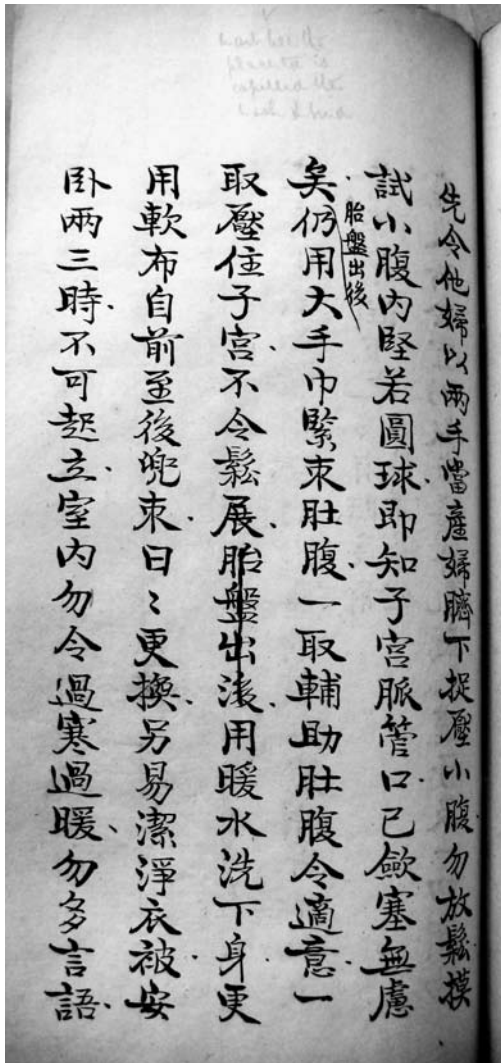 先令他婦以兩手當產婦臍下捉壓小腹勿放鬆摸
試小腹內堅若圓球即知子宮脈管口已歛塞無慮
矣仍用大手巾緊束肚腹一取輔助肚腹令適意一
胎盤出後
取壓住子宮不令鬆展胎盤出後用暖水洗下身更
用軟布自前至後兜束日〻更換另易潔淨衣被安
臥兩三時不可起立室內勿令過寒過暖勿多言語
placenta is